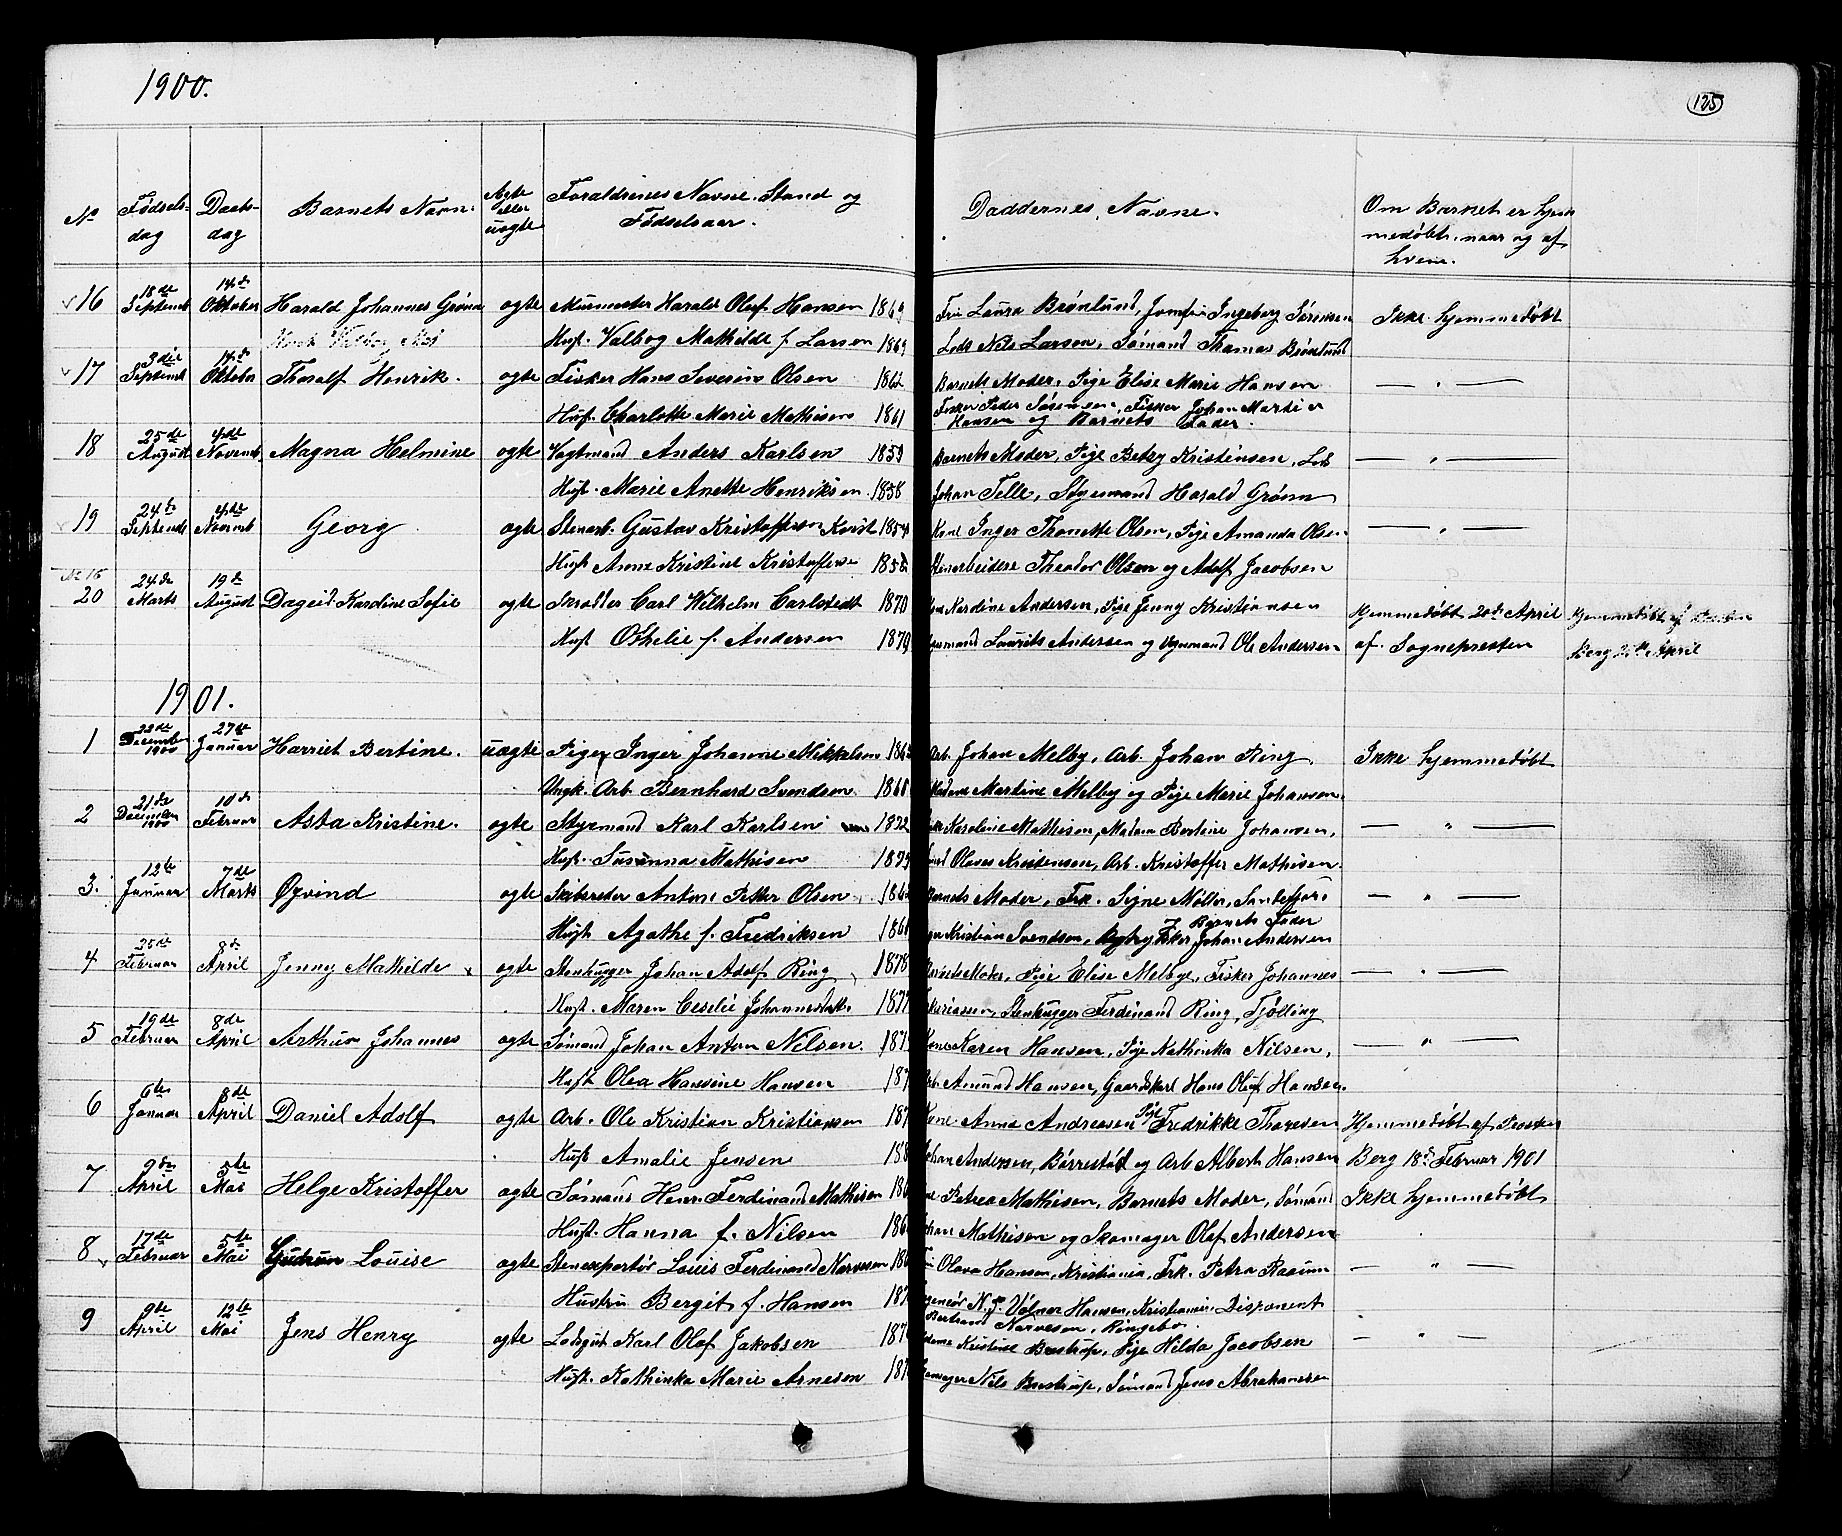 1900.
125
No
Fødsels-
dag
Daabs-
dag
Barnets Navn.
Ægte
eller
uægte
Foraldrenes Navne. Stand og
Fødselsaar.
Daddernes Navne.
Om Barnet er hjem
medøbt, naar og af
hvem.
16 18de Septemb 14de Oktober Harald Johannes Grønn ægte Murmester Harald Oluf Hansen 1869 Fru Laura Brønlund, Jomfru Ingeborg Sørensen Ikke hjemmedøbt
Hust. Valbog Mathilde f. Larsen 1869 Lods Nils Larsen, Sømand Thomas Brønlund
17 3die Septemb 14de Oktober Thoralf Henrik. ægte Fisker Hans Severin Olsen 1862 Barnets Moder, Pige Elise Marie Hansen — " —
Husf. Charlotte Marie Mathisen 1861 Fisker Peder Sørensen, Fisker Johan Martin
Hansen og Barnets Fader.
18 25de August 4de Novemb. Magna Helmine ægte Vagtmand Anders Karlsen 1859 Barnets Moder, Pige Betzy Kristensen, Lods — " —
Hust. Marie Anette Henriksen 1858 Johan Telle, Styrmand Harald Grønn
19 24de Septemb 4de Novemb Georg ægte Stenarb. Gustav Kristoffersen Kvist 1854 Kone Inger Thonette Olsen, Pige Amanda Olsen — " —
Hust Anne Kristine Kristoffersen 1852 Stenarbeidere Theodor Olsen og Adolf Jacobsen
No 16
20 24de Marts 19de August Dageid Kardine Sofie ægte Skrædder Carl Wilhelm Carlstedt 1870 Kone Kardine Andersen, Pige Jenny Kristiansen Hjemmedøbt 20de April Hjemmedøbt af
Husf Othelie f. Andersen 1879 Laurits Andersen og Styrmand Ole Andersen af Sognepresten Berg 20de April
1901.
1 22de December 1900 27de Januar Harriet Bertine. uægte Pige Inger Johanne Mikkelsen Arb. Johan Melby, Arb. Johan Ring Ikke hjemmedøbt
Ungk. Arb. Bernhard Svendsen 1868 Madame Martine Melby og Pige Marie Johansen
2 21de December 1900 10de Februar Asta Kristine. ægte Styrmand Karl Karlsen 1872 Karoline Mathisen, Madam Bertine Johansen, — " —
Husf. Susanna Mathisen Olaves Kristensen, Arb. Kristoffer Mathisen
3. 12te Januar 7de Marts Øyvind ægte Skibsreder Anton Petter Olsen Barnets Moder, Frk. Signe Møller, Sandefjord — " —
Hust Agathe f. Fredriksen Kristian Svendsen, Fisker Johan Andersen
& Barnets Fader
4 25de Februar 8de April Jenny Mathilde ægte Stenhugger Johan Adolf Ring 1878 Barnets Moder, Pige Elise Melbye, Fisker Johannes — " —
Husf. Maren Cecilie Johannesdatter Stenhugger Ferdinand Ring, Tjølling
5 19de Februar 8de April Arthur Johannes ægte Sømand Johan Anton Nilsen. Kone Karen Hansen, Pige Kathinka Nilsen, — " —
Husf. Olea Hansine Hansen Arb. Amund Hansen, Gaardskarl Hans Oluf Hansen
6 6te Januar 8de April Daniel Adolf ægte Arb. Ole Kristian Kristiansen Kone Anna Andreasen Pige Fredrikke Thoresen Hjemmedøbt af Presten
Husf Amalie Jensen Johan Andersen, Børrestad og Arb Albert Hansen Berg 18de Februar 1901
7 9de April 5te Mai Helge Kristoffer ægte Sømand Henr. Ferdinand Mathisen Petrea Mathisen, Barnets Moder, Sømand Ikke hjemmedøbt
Husf. Hanna f. Nilsen Johan Mathisen og Skomager Olaf Andersen
8 17de Februar 5te Mai Gudrun Louise ægte Stenexportør Louis Ferdinand Narvesen Fru Olava Hansen, Kristiania, Frk. Petra Raaum — " —
Hustru Bergit f. Hansen N. J. Volner Hansen, Kristiania, Disponent
Bertrand Narvesen, Ringebo.
9 9de April 12te Mai Jens Henry ægte Lodsgut Karl Olaf Jakobsen Madame Kristine Bustrup, Pige Hilda Jacobsen — " —
Husf. Kathinka Marie Arnesen Skomager Nils Bustrup, Sømand Jens Abrahamsen